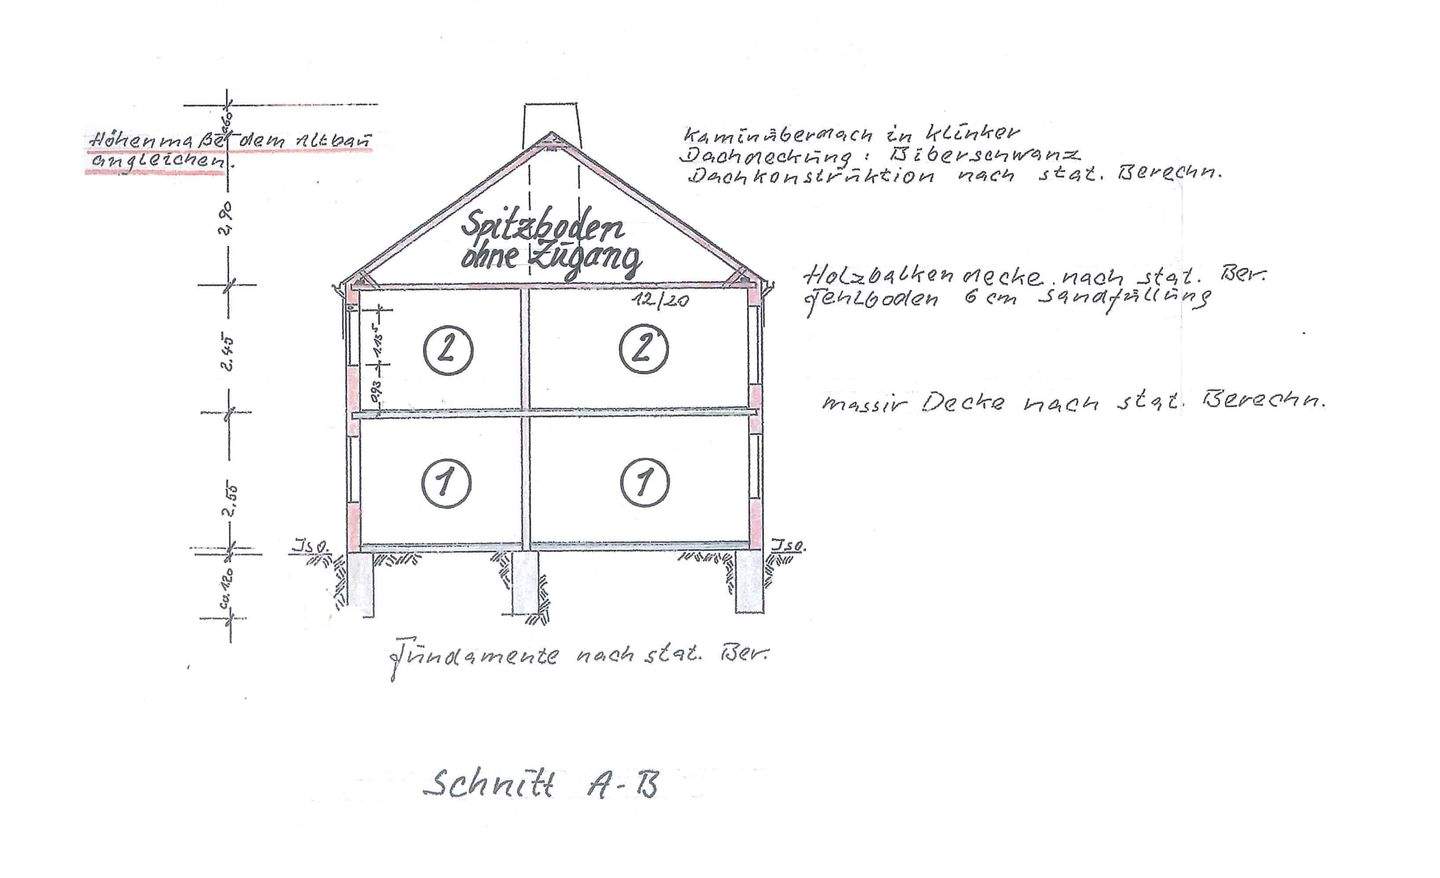 Höhenmaße dem Altbau
angleichen.
Kaminüberdach in Klinker
Dachdeckung: Biberschwanz
Dachkonstruktion nach stat. Berechn.
60
2,90
Spitzboden
ohne Zugang
Holzbalkendecke nach stat. Ber.
Fehlboden 6 cm Sandfüllung
12/20
2.45
1.135
0,93
2
2
massiv Decke nach stat. Berechn.
2,55
1
1
Iso.
Iso.
ca. 120
Fundamente nach stat. Ber.
Schnitt A-B